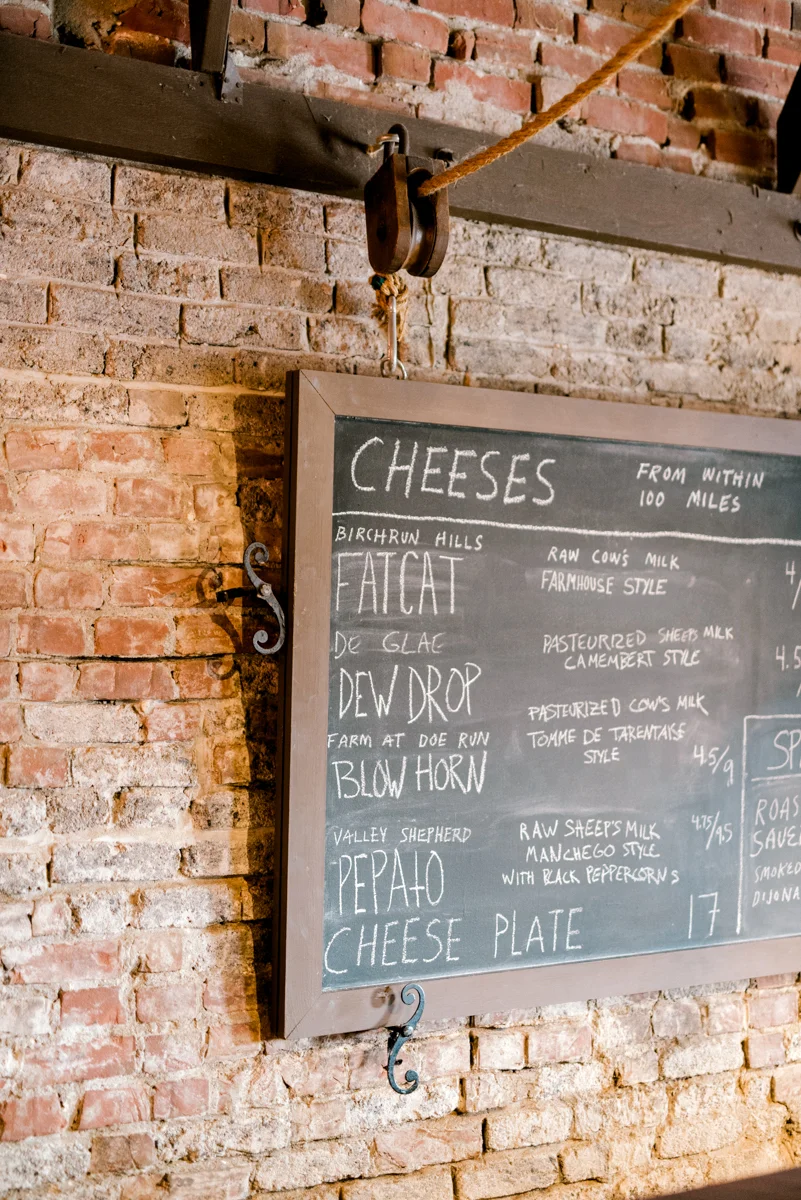 CHEESES
FROM WITHIN
100 MILES
BIRCHRUN HILLS
FATCAT
RAW COW'S MILK
FARMHOUSE STYLE
4/
DE GLAE
DEW DROP
PASTEURIZED SHEEP'S MILK
CAMEMBERT STYLE
4.5
FARM AT DOE RUN
BLOW HORN
PASTEURIZED COW'S MILK
TOMME DE TARENTAISE
STYLE
4.5/9
VALLEY SHEPHERD
PEPATO
RAW SHEEP'S MILK
MANCHEGO STYLE
WITH BLACK PEPPERCORNS
4.75/9.5
CHEESE PLATE 17
SP
ROAS
SAUE
SMOKED
DIJONA